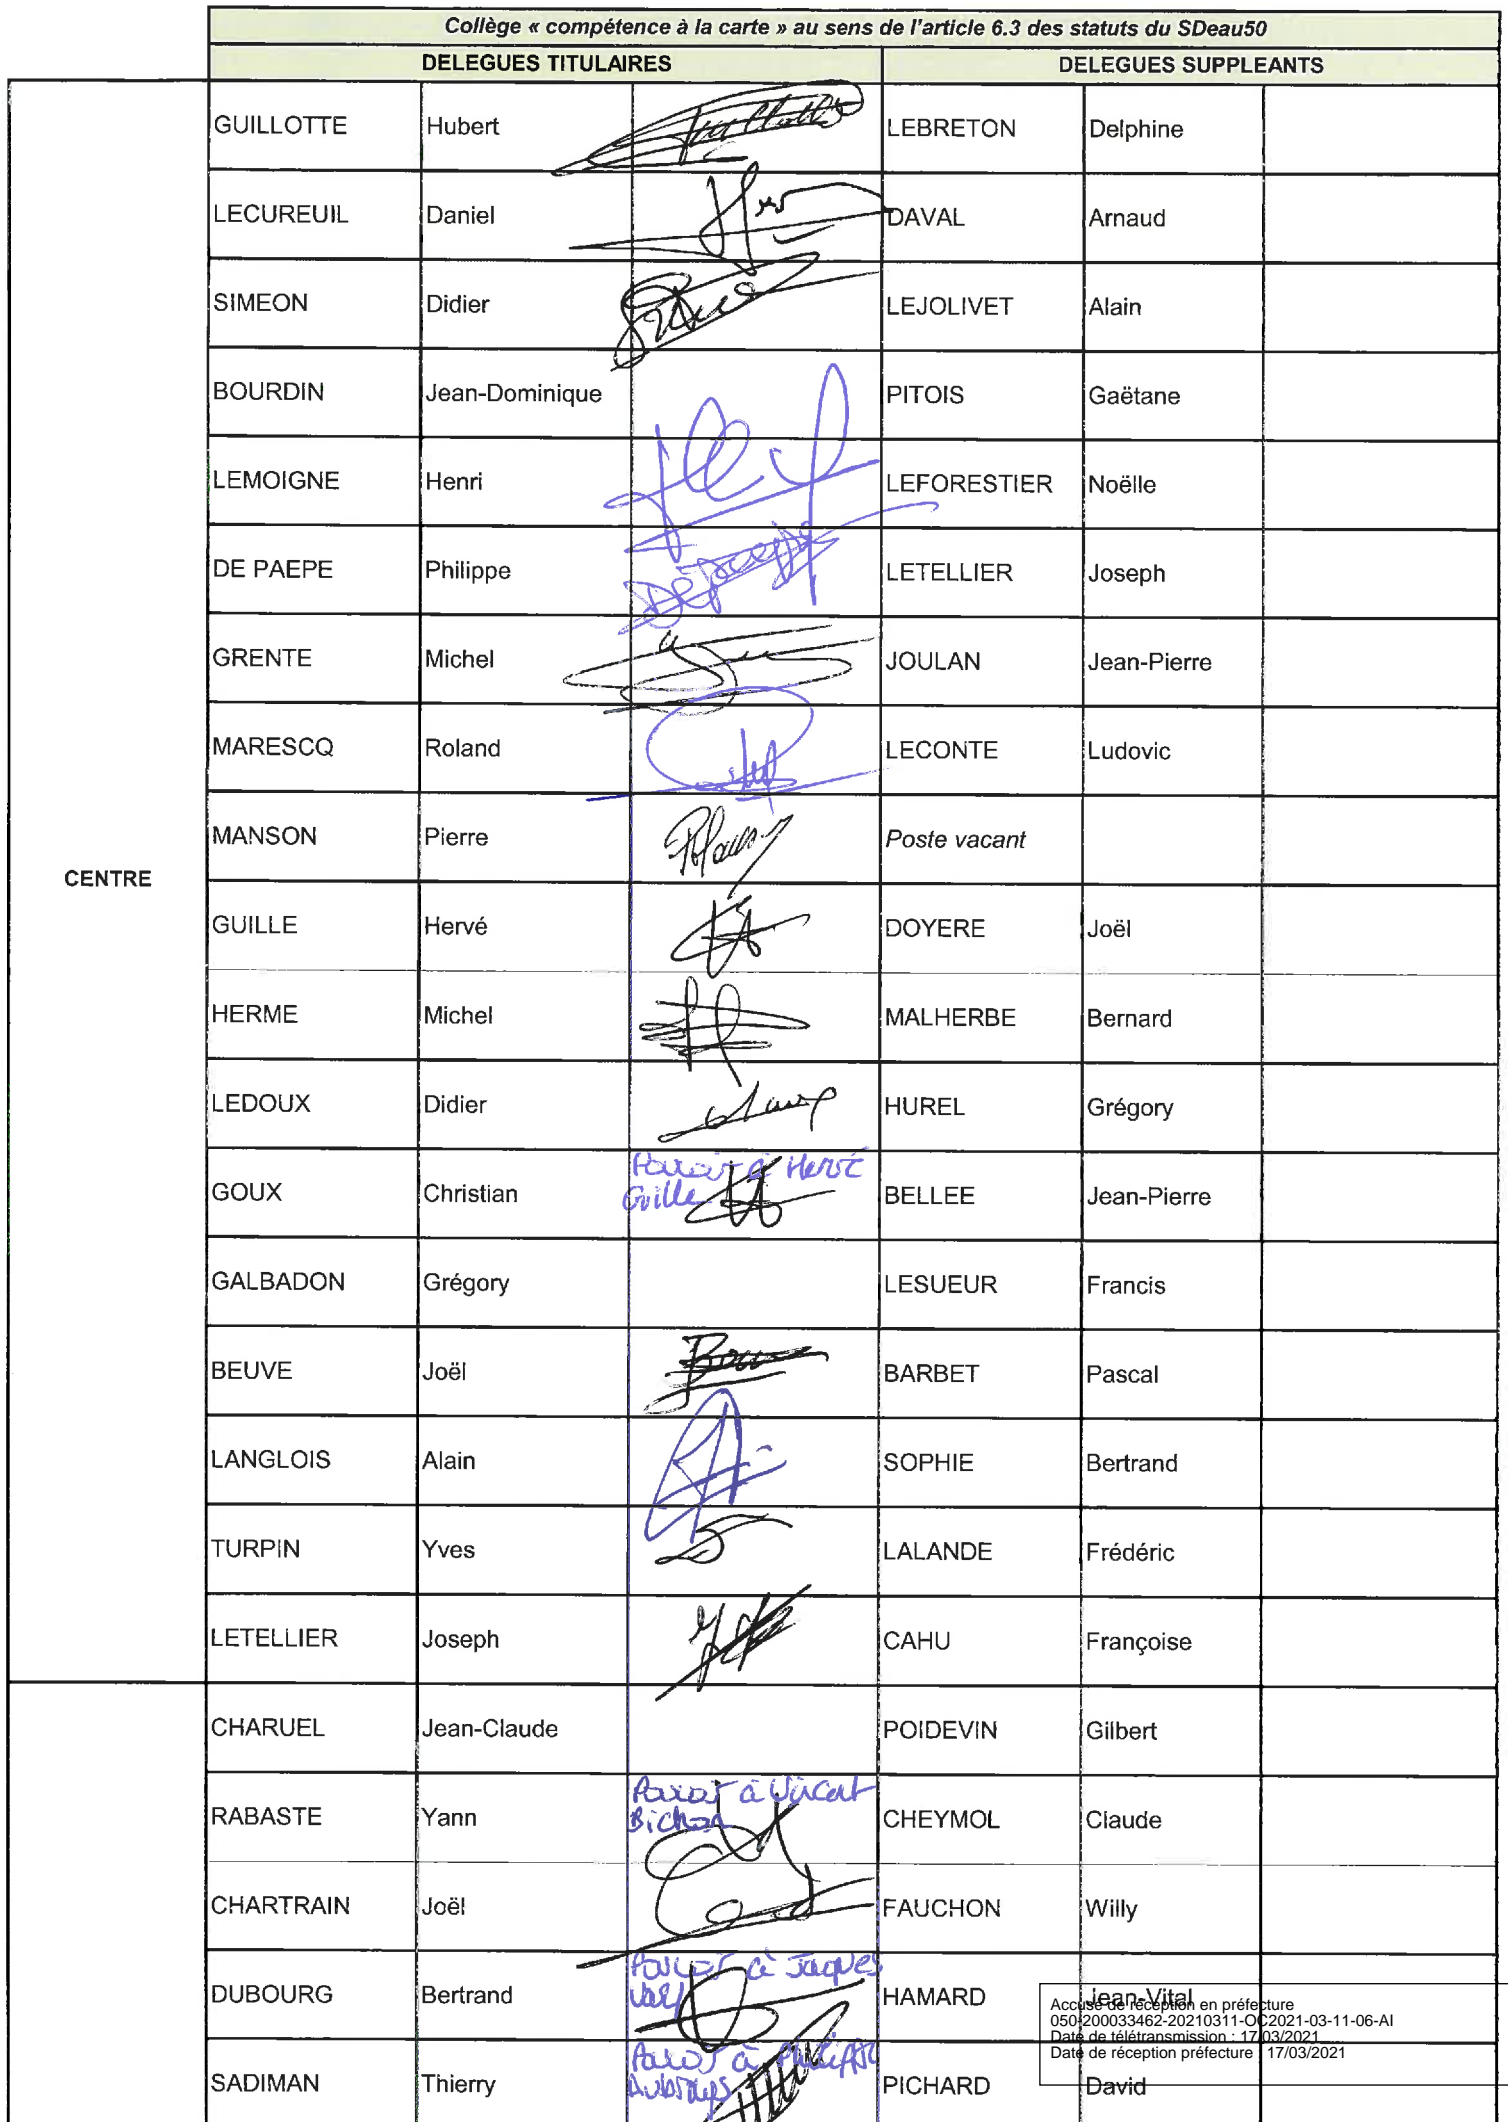 Collège « compétence à la carte » au sens de l'article 6.3 des statuts du SDeau50
DELEGUES TITULAIRES DELEGUES SUPPLEANTS
GUILLOTTE Hubert LEBRETON Delphine
LECUREUIL Daniel DAVAL Arnaud
SIMEON Didier LEJOLIVET Alain
BOURDIN Jean-Dominique PITOIS Gaëtane
LEMOIGNE Henri LEFORESTIER Noëlle
DE PAEPE Philippe LETELLIER Joseph
GRENTE Michel JOULAN Jean-Pierre
MARESCQ Roland LECONTE Ludovic
MANSON Pierre Poste vacant
CENTRE
GUILLE Hervé DOYERE Joël
HERME Michel MALHERBE Bernard
LEDOUX Didier HUREL Grégory
GOUX Christian Pouvoir à Hervé BELLEE Jean-Pierre
Guille
GALBADON Grégory LESUEUR Francis
BEUVE Joël BARBET Pascal
LANGLOIS Alain SOPHIE Bertrand
TURPIN Yves LALANDE Frédéric
LETELLIER Joseph CAHU Françoise
CHARUEL Jean-Claude POIDEVIN Gilbert
RABASTE Yann Pouvoir à Vincent CHEYMOL Claude
Bichon
CHARTRAIN Joël FAUCHON Willy
DUBOURG Bertrand Pouvoir à Jaques HAMARD Jean-Vital
SADIMAN Thierry Pouvoir à Philippe PICHARD David
Accusé de réception en préfecture
050-200033462-20210311-OC2021-03-11-06-AI
Date de télétransmission : 17/03/2021
Date de réception préfecture : 17/03/2021